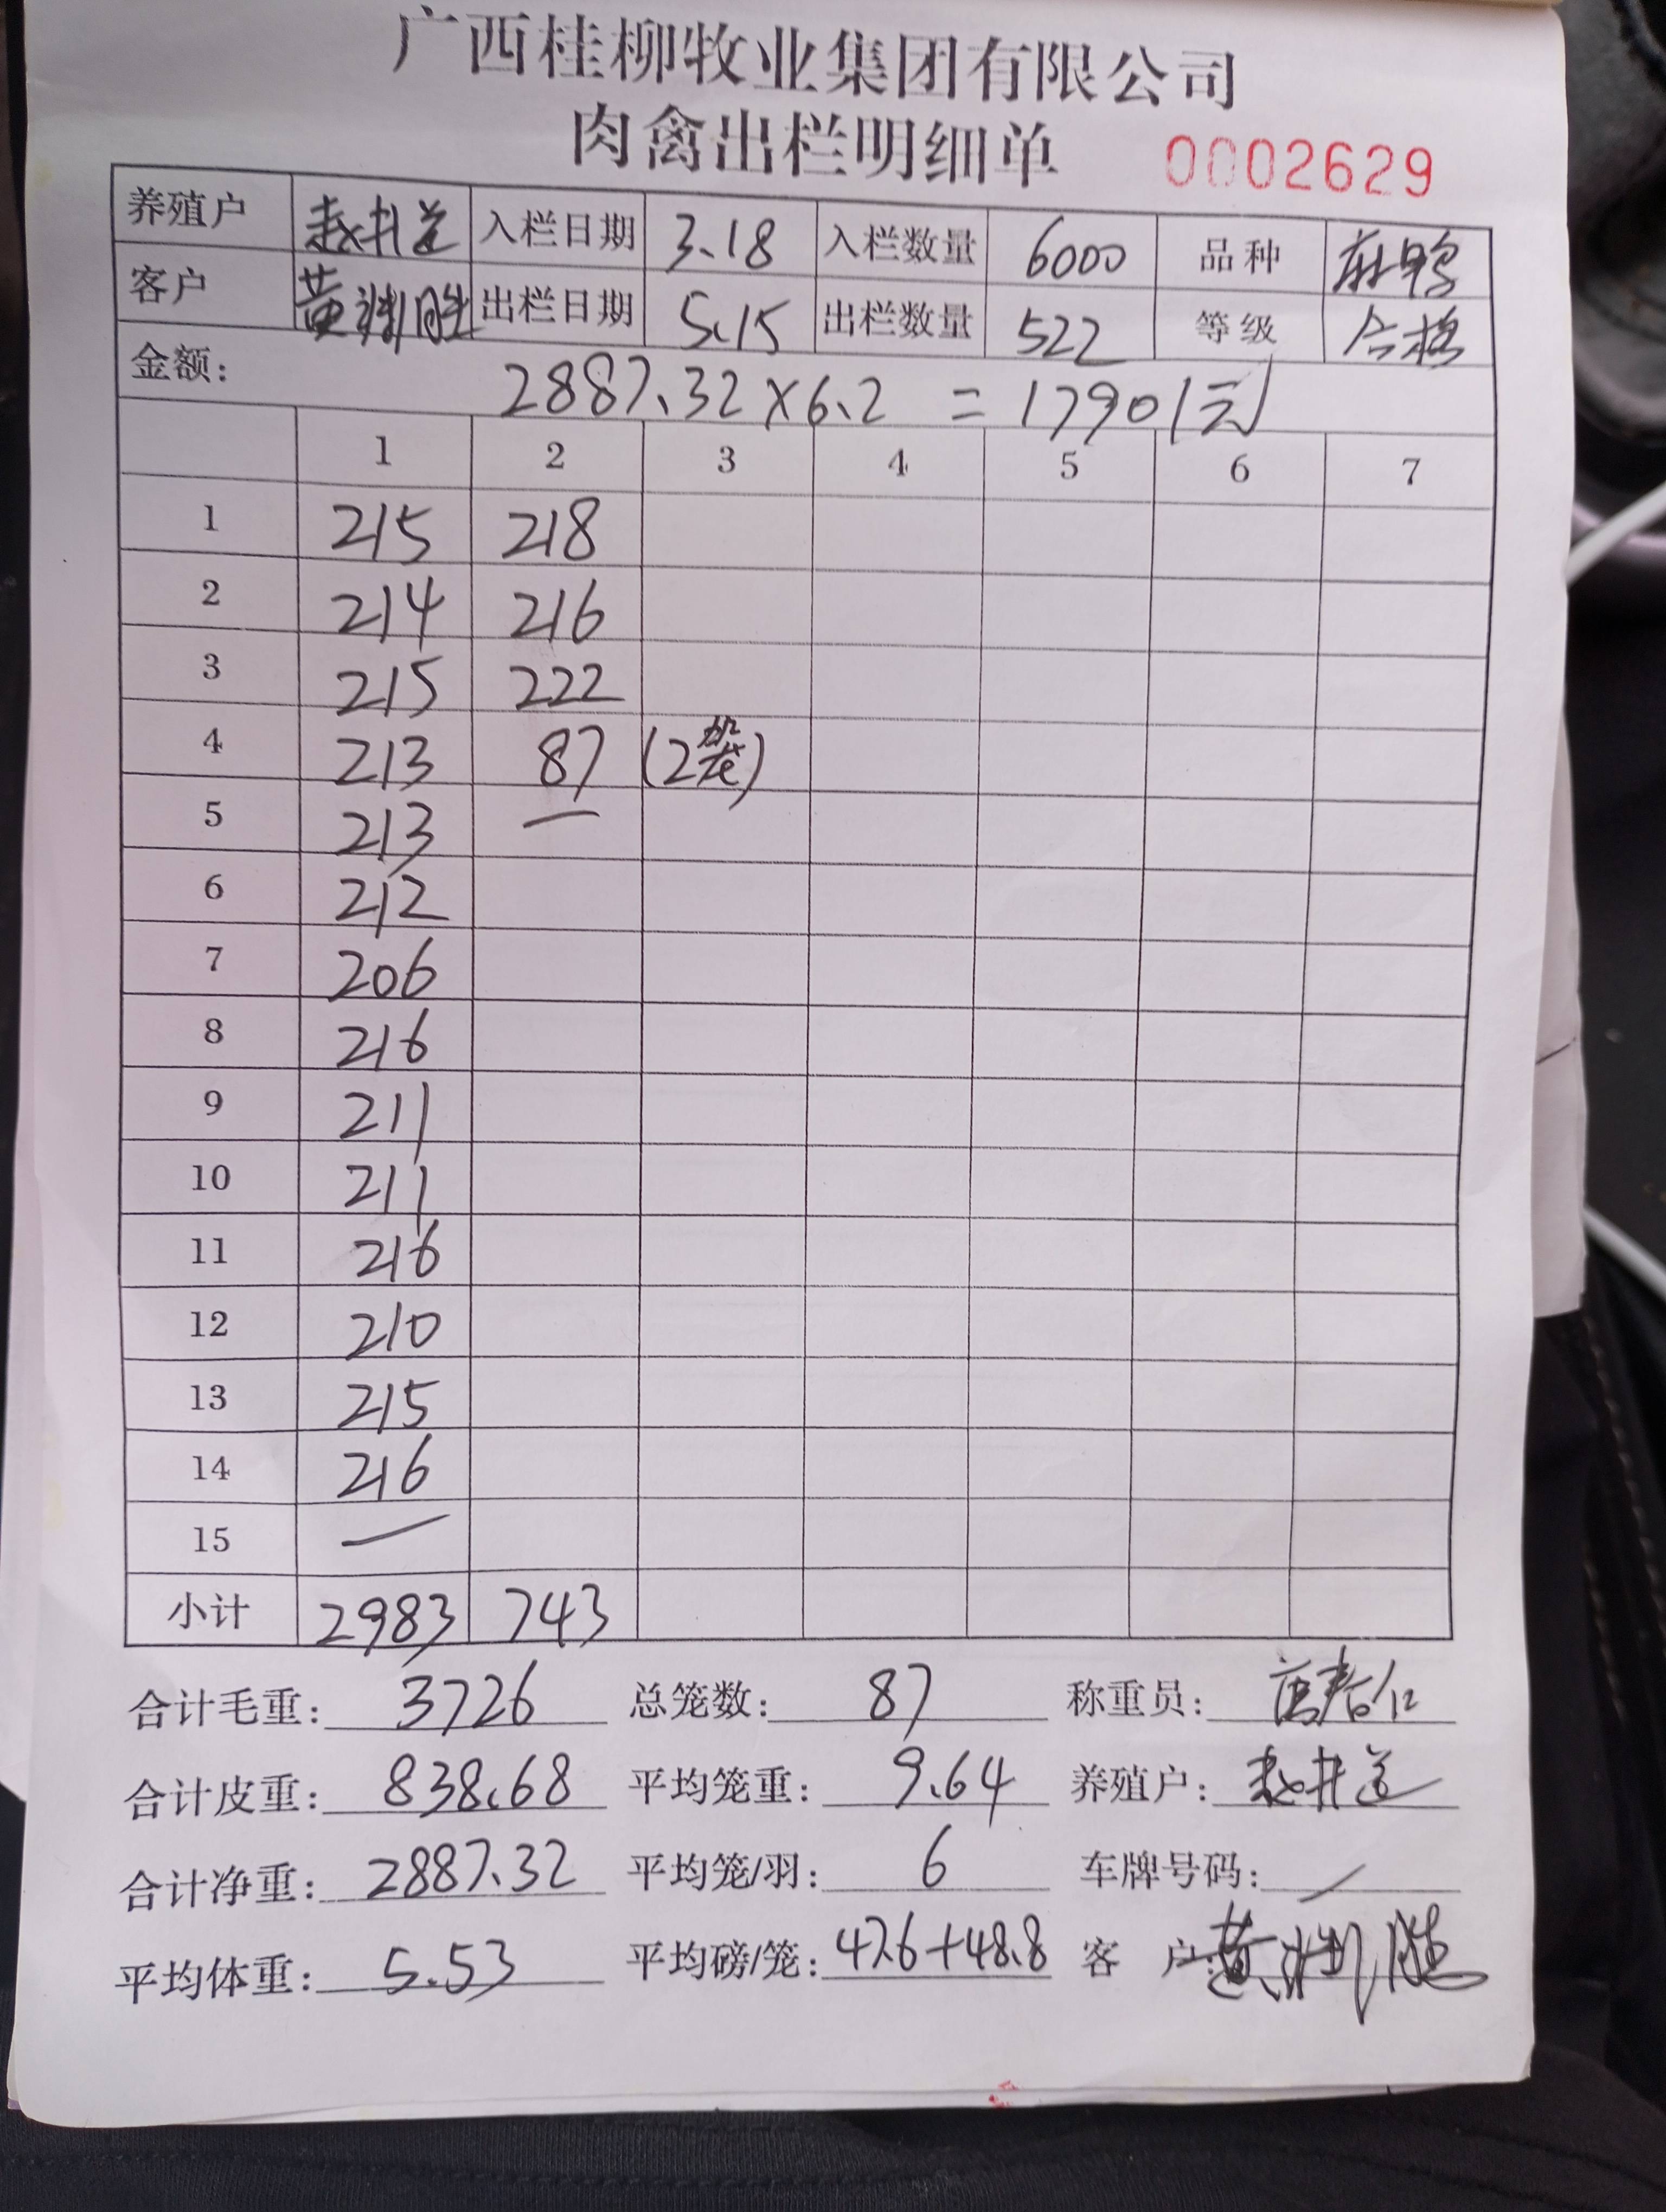 广西桂柳牧业集团有限公司
肉禽出栏明细单 0002629
养殖户 入栏日期 3.18 入栏数量 6000 品种 麻鸭
客户 黄 胜 出栏日期 5.15 出栏数量 522 等级 合格
金额: 2887.32×6.2 = 17901元
1 2 3 4 5 6 7
1 215 218
2 214 216
3 215 222
4 213 87 (2笼)
5 213 —
6 212
7 206
8 216
9 211
10 211
11 216
12 210
13 215
14 216
15 —
小计 2983 743
合计毛重: 3726 总笼数: 87 称重员:
合计皮重: 838.68 平均笼重: 9.64 养殖户:
合计净重: 2887.32 平均笼/羽: 6 车牌号码: /
平均体重: 5.53 平均磅/笼: 47.6+48.8 客 户: 黄 胜